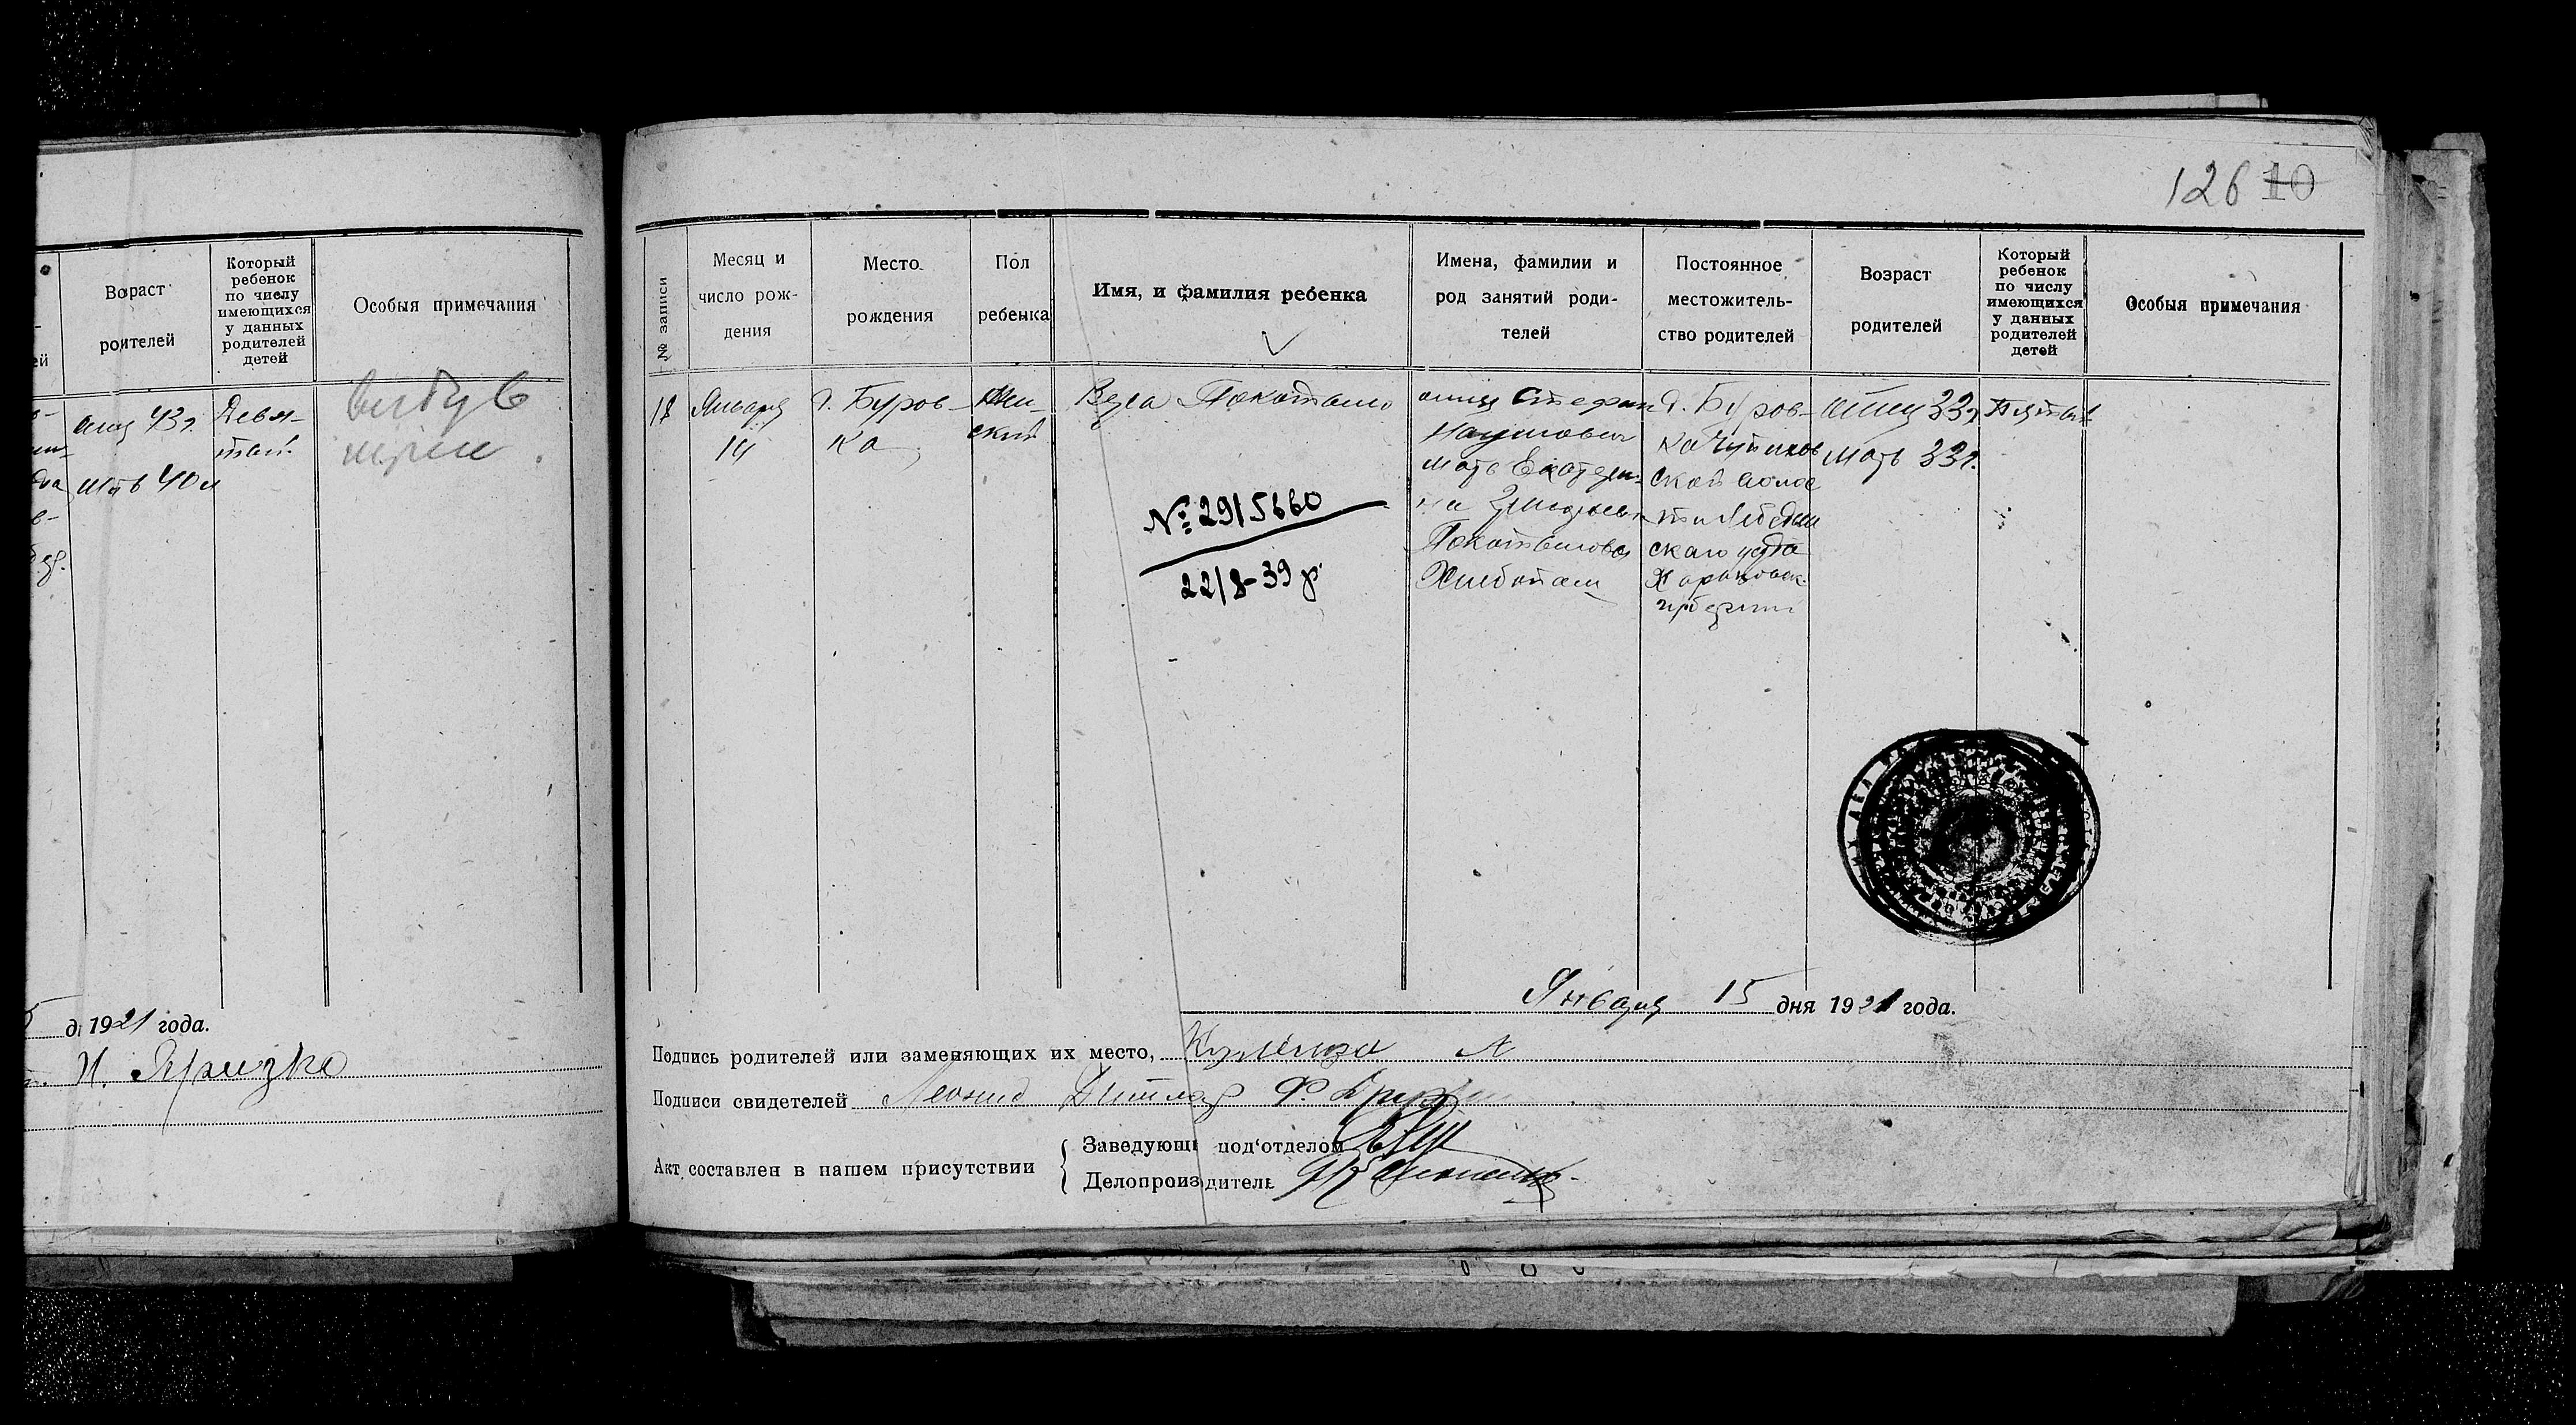 Возраст
роителей
Который
ребенок
по числу
имеющихся
у данных
родителей
детей
Особыя примечания
отец 43 г.
мать 40 л
Девя-
тый
вибув
д 1921 года.
126 10
№ записи
Месяц и
число рож-
дения
Место
рождения
Пол
ребенка
Имя, и фамилия ребенка
Имена, фамилии и
род занятий роди-
телей
Постоянное
местожитель-
ство родителей
Возраст
родителей
Который
ребенок
по числу
имеющихся
у данных
родителей
детей
Особыя примечания
18
Января
14
д. Буров-
ка
Жен-
ский
Вера Покотило
отец Стефан
Наумович
мать Екатери-
на
Покотилова
Хлебопаш
д. Буров-
ка
ской волос
ти Лебедин
скаго уезда
Харьковск
губернии
отец 33 г.
мать 33 г.
Пятый
№ 2915660
22/8-39 р
Января 15 дня 1921 года.
Подпись родителей или заменяющих их место,
Подписи свидетелей Леонид
Акт составлен в нашем присутствии
Заведующи под'отделом
Делопроизводитель